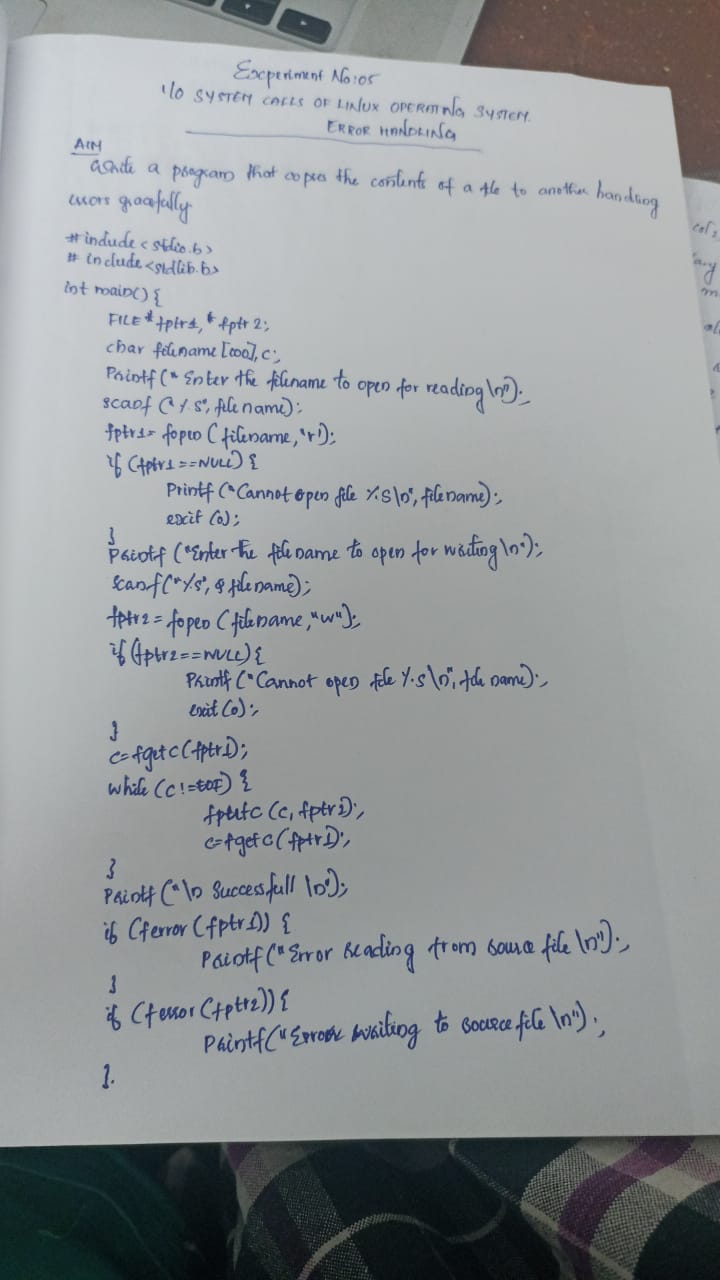 Experiment No:05
I/O SYSTEM CALLS OF LINUX OPERATING SYSTEM.
ERROR HANDLING
AIM
Write a program that copies the contents of a file to another handling
errors gracefully.
#include <stdio.h>
# include <stdlib.h>
int main() {
FILE *fptr1, * fptr 2;
char filename [100], c;
Printf (" Enter the filename to open for reading \n");
scanf ("%s", filename);
fptr1 = fopen (filename, "r");
if (fptr1 ==NULL) {
Printf ("Cannot open file %s\n", filename);
exit (0);
}
Printf ("Enter the file name to open for writing \n");
Scanf("%s", & filename);
fptr2 = fopen (filename, "w");
if (fptr2==NULL) {
Printf ("Cannot open file %s\n", file name);
exit (0);
}
c= fgetc (fptr1);
while (c !=EOF) {
fputc (c, fptr2);
c=fgetc (fptr1);
}
Printf ("\n Successfull \n");
if (ferror (fptr1)) {
Printf (" Error Reading from source file \n");
}
if (ferror (fptr2)) {
Printf(" Error writing to source file \n");
}.
cols
any
m
al